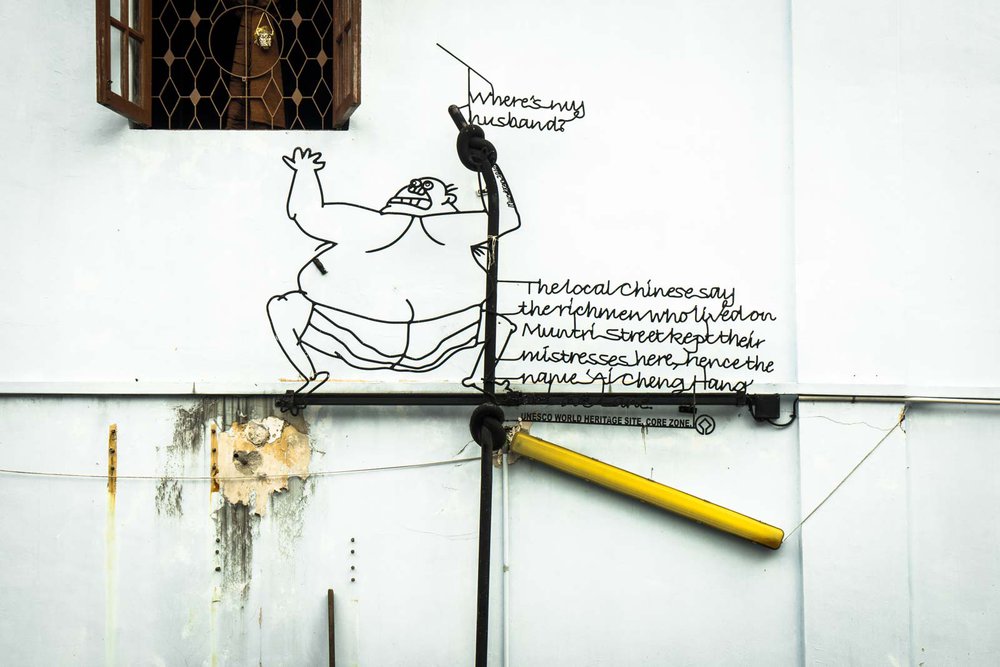 Where's my
husband?
The local Chinese say
the rich men who lived on
Muntri Street kept their
mistresses here, hence the
name 'Ai Cheng Hang'
UNESCO WORLD HERITAGE SITE, CORE ZONE.